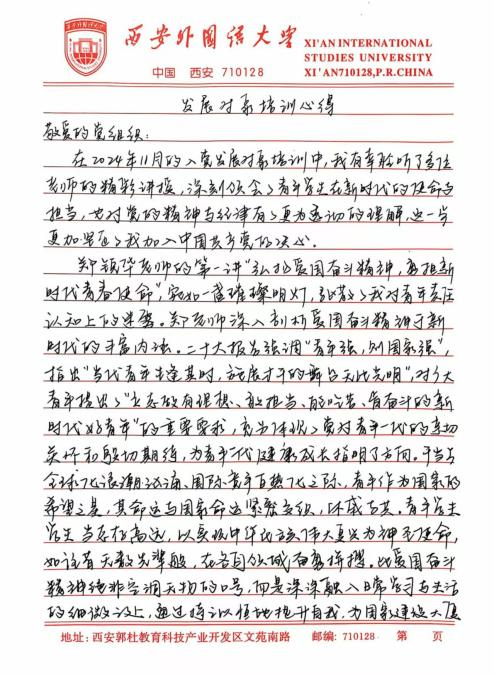 西安外国语大学
XI'AN INTERNATIONAL
STUDIES UNIVERSITY
中国 西安 710128
XI'AN710128,P.R.CHINA
发展对象培训心得
敬爱的党组织:
在2024年11月的入党发展对象培训中,我有幸聆听了多位
老师的精彩讲授,深刻领会了青年学生在新时代的使命与
担当,也对党的精神与纪律有了更为透彻的理解,进一步
更加坚定了我加入中国共产党的决心。
郑颖华老师的第一讲“弘扬爱国奋斗精神,勇担新
时代青春使命”,宛如一盏璀璨明灯,驱散了我对青年责任
认知上的迷雾。郑老师深入剖析爱国奋斗精神于新
时代的丰富内涵。二十大报告强调“青年强,则国家强”,
指出“当代青年生逢其时,施展才干的舞台无比光明”,对广大
青年提出了“立志做有理想、敢担当、能吃苦、肯奋斗的新
时代好青年”的重要要求,充分体现了党对青年一代的亲切
关怀和殷切期待,为青年一代健康成长指明了方向。于当今
全球化浪潮汹涌、国际竞争白热化之际,青年作为国家的
希望之星,其命运与国家命运紧密交织,休戚与共。青年学生
当志存高远,以实现中华民族伟大复兴为神圣使命,
如往昔无数先辈般,在各自领域奋勇拼搏。此爱国奋斗
精神绝非空洞无物的口号,而是深深融入日常学习与生活
的细微之处,通过持之以恒地提升自我,为国家建设大厦
地址:西安郭杜教育科技产业开发区文苑南路 邮编: 710128 第 页